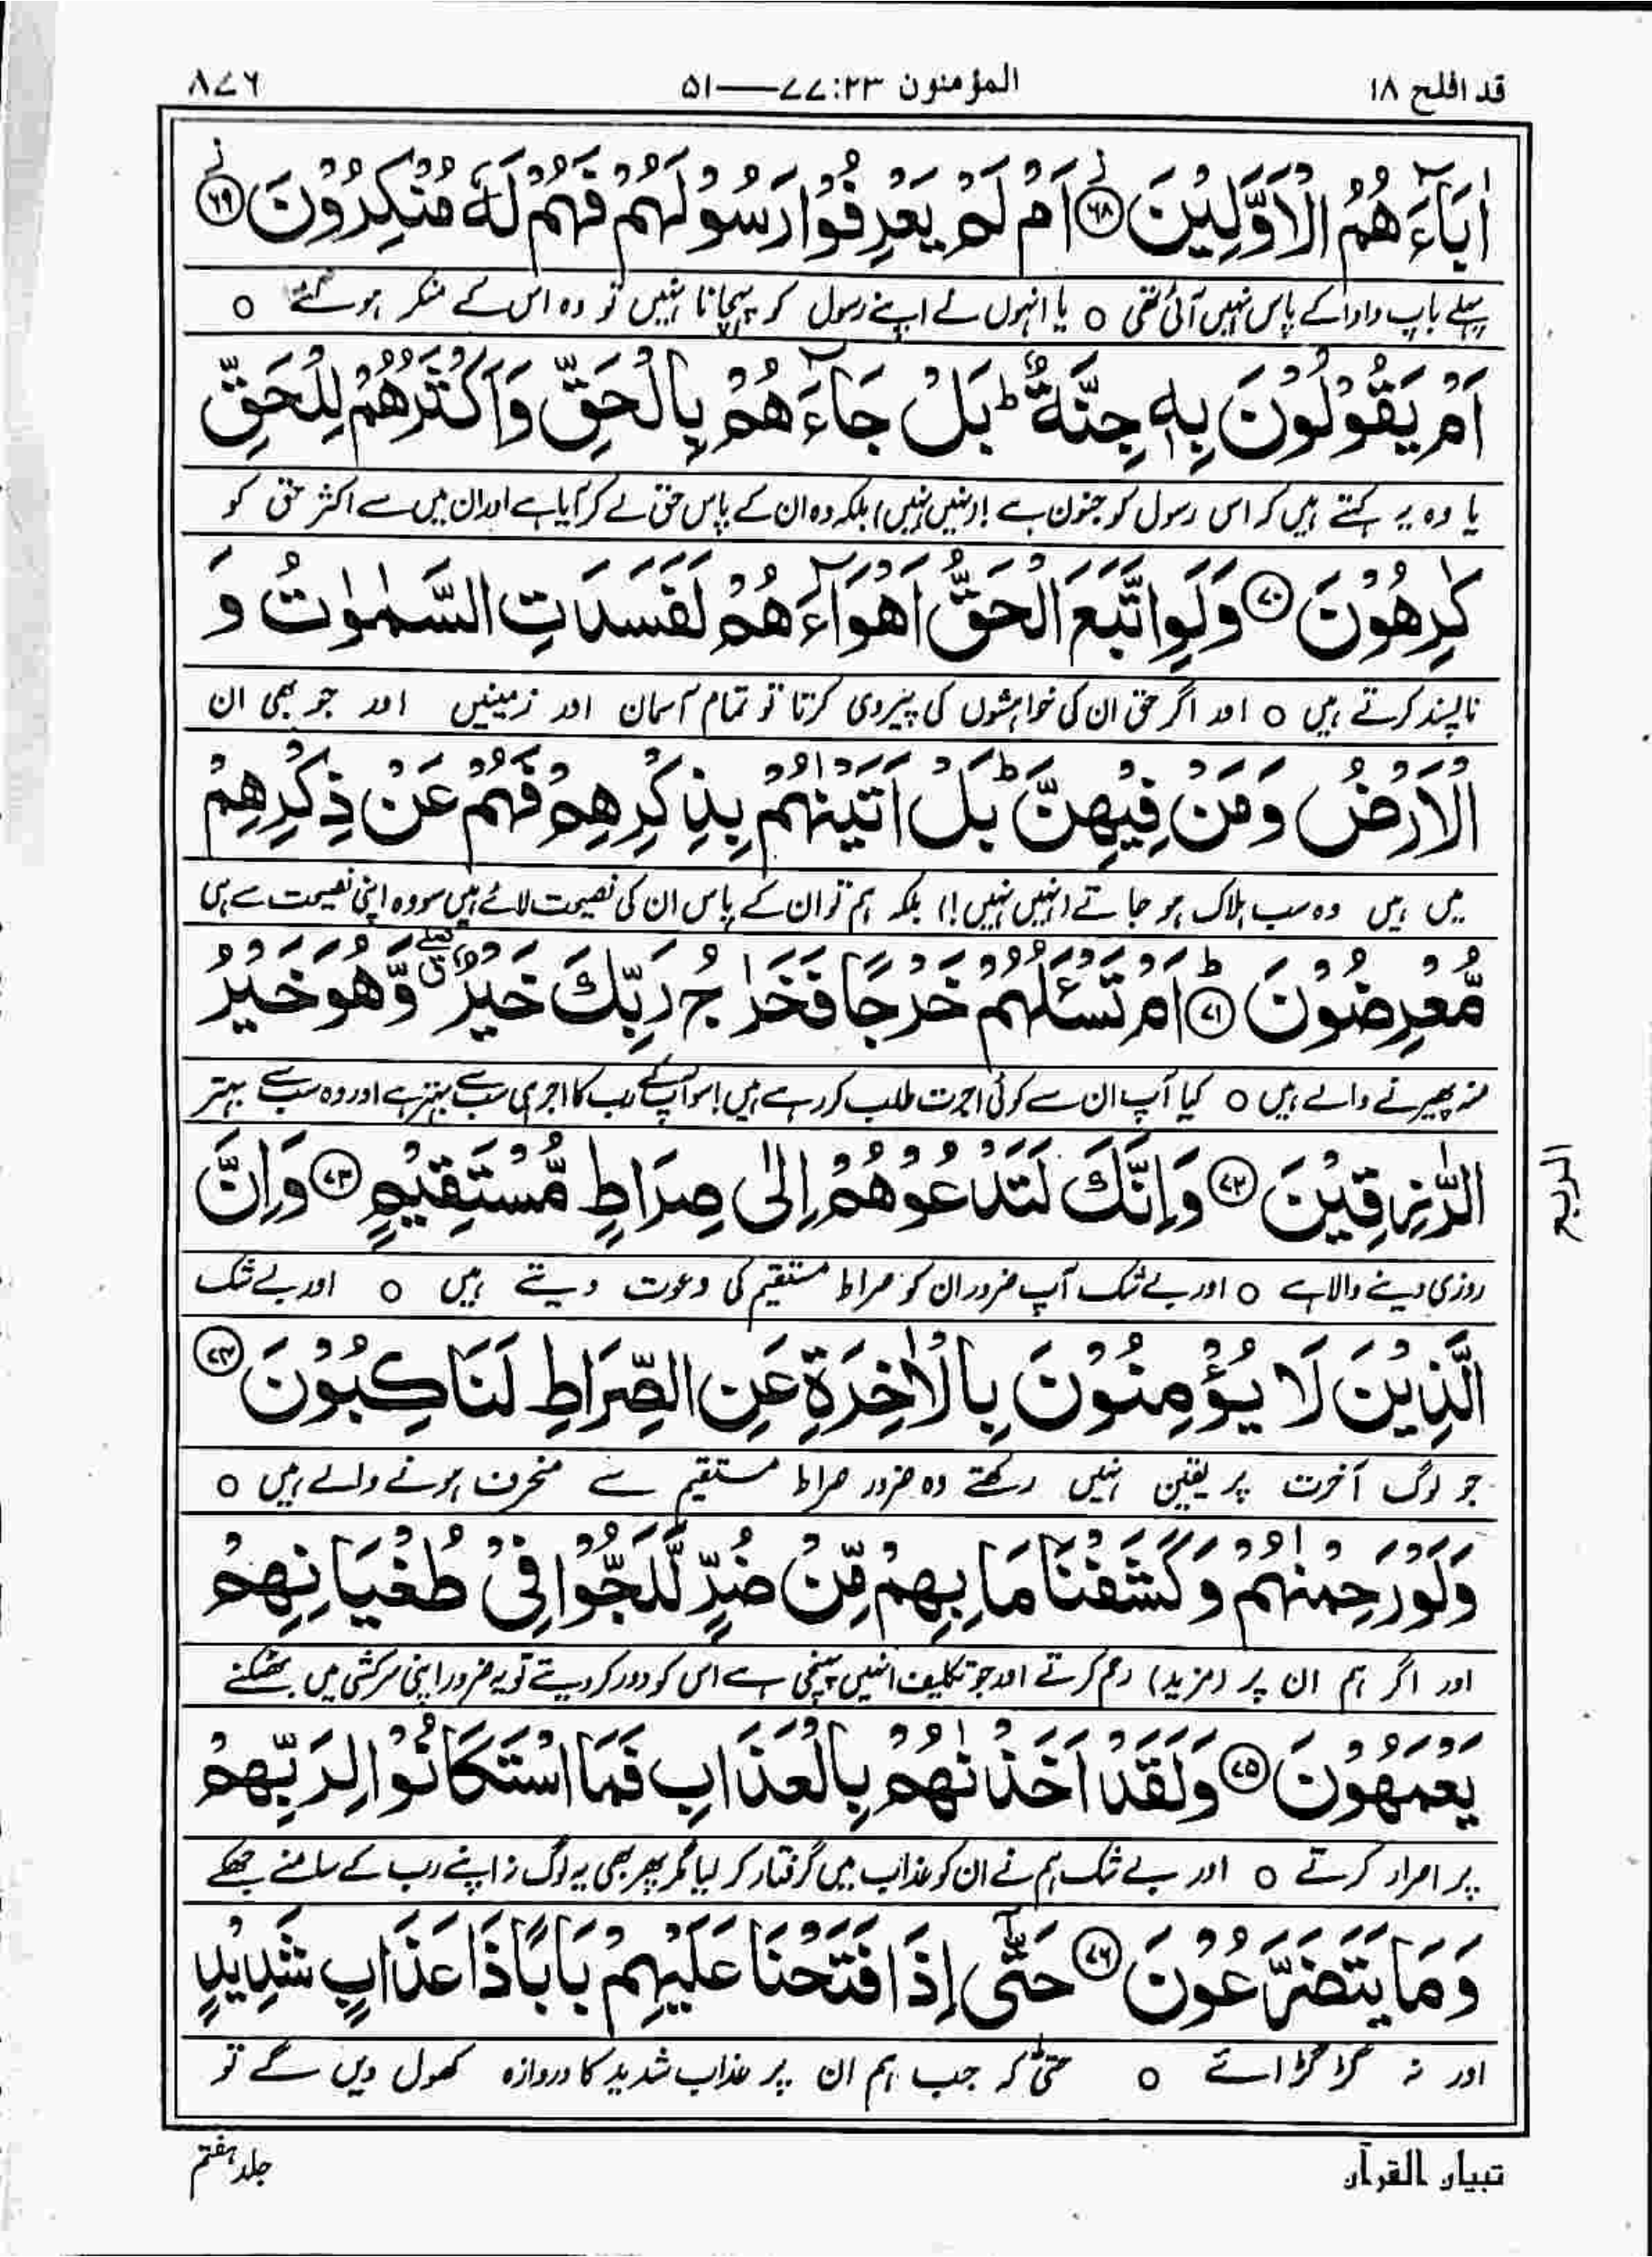 قد افلح ۱۸
المؤمنون ۲۳: ۷۷ — ۵۱
۸۷۶
اٰبَآءَهُمُ الْاَوَّلِيْنَ ۶۸ اَمْ لَمْ يَعْرِفُوْا رَسُوْلَهُمْ فَهُمْ لَهٗ مُنْكِرُوْنَ ۶۹
پہلے باپ دادا کے پاس نہیں آئی تھی o یا انہوں نے اپنے رسول کو پہچانا نہیں تو وہ اس کے منکر ہو گئے o
اَمْ يَقُوْلُوْنَ بِهٖ جِنَّةٌ ؕ بَلْ جَآءَهُمْ بِالْحَقِّ وَاَكْثَرُهُمْ لِلْحَقِّ
یا وہ یہ کہتے ہیں کہ اس رسول کو جنون ہے! (نہیں نہیں) بلکہ وہ ان کے پاس حق لے کر آیا ہے اور ان میں سے اکثر حق کو
كٰرِهُوْنَ ۷۰ وَلَوِ اتَّبَعَ الْحَقُّ اَهْوَآءَهُمْ لَفَسَدَتِ السَّمٰوٰتُ وَ
ناپسند کرتے ہیں o اور اگر حق ان کی خواہشوں کی پیروی کرتا تو تمام آسمان اور زمینیں اور جو بھی ان
الْاَرْضُ وَمَنْ فِيْهِنَّ ؕ بَلْ اَتَيْنٰهُمْ بِذِكْرِهِمْ فَهُمْ عَنْ ذِكْرِهِمْ
میں ہیں وہ سب ہلاک ہو جاتے (نہیں نہیں!) بلکہ ہم تو ان کے پاس ان کی نصیحت لائے ہیں سو وہ اپنی نصیحت سے ہی
مُّعْرِضُوْنَ ؕ ۷۱ اَمْ تَسْـَٔلُهُمْ خَرْجًا فَخَرَاجُ رَبِّكَ خَيْرٌ وَّهُوَ خَيْرُ
منہ پھیرنے والے ہیں o کیا آپ ان سے کوئی اجرت طلب کر رہے ہیں! سو آپ کے رب کا اجر ہی سب سے بہتر ہے اور وہ سب سے بہتر
الرّٰزِقِيْنَ ۷۲ وَاِنَّكَ لَتَدْعُوْهُمْ اِلٰى صِرَاطٍ مُّسْتَقِيْمٍ ۷۳ وَاِنَّ
الربع
روزی دینے والا ہے o اور بے شک آپ ضرور ان کو صراط مستقیم کی دعوت دیتے ہیں o اور بے شک
الَّذِيْنَ لَا يُؤْمِنُوْنَ بِالْاٰخِرَةِ عَنِ الصِّرَاطِ لَنَاكِبُوْنَ ۷۴
جو لوگ آخرت پر یقین نہیں رکھتے وہ ضرور صراط مستقیم سے منحرف ہونے والے ہیں o
وَلَوْ رَحِمْنٰهُمْ وَكَشَفْنَا مَا بِهِمْ مِّنْ ضُرٍّ لَّلَجُّوْا فِيْ طُغْيَانِهِمْ
اور اگر ہم ان پر (مزید) رحم کرتے اور جو تکلیف انہیں پہنچی ہے اس کو دور کر دیتے تو یہ ضرور اپنی سرکشی میں بھٹکنے
يَعْمَهُوْنَ ۷۵ وَلَقَدْ اَخَذْنٰهُمْ بِالْعَذَابِ فَمَا اسْتَكَانُوْا لِرَبِّهِمْ
پر اصرار کرتے o اور بے شک ہم نے ان کو عذاب میں گرفتار کر لیا مگر پھر بھی یہ لوگ نہ اپنے رب کے سامنے جھکے
وَمَا يَتَضَرَّعُوْنَ ۷۶ حَتّٰۤى اِذَا فَتَحْنَا عَلَيْهِمْ بَابًا ذَا عَذَابٍ شَدِيْدٍ
اور نہ گڑگڑائے o حتیٰ کہ جب ہم ان پر عذاب شدید کا دروازہ کھول دیں گے تو
تبیان القرآن
جلد ہفتم